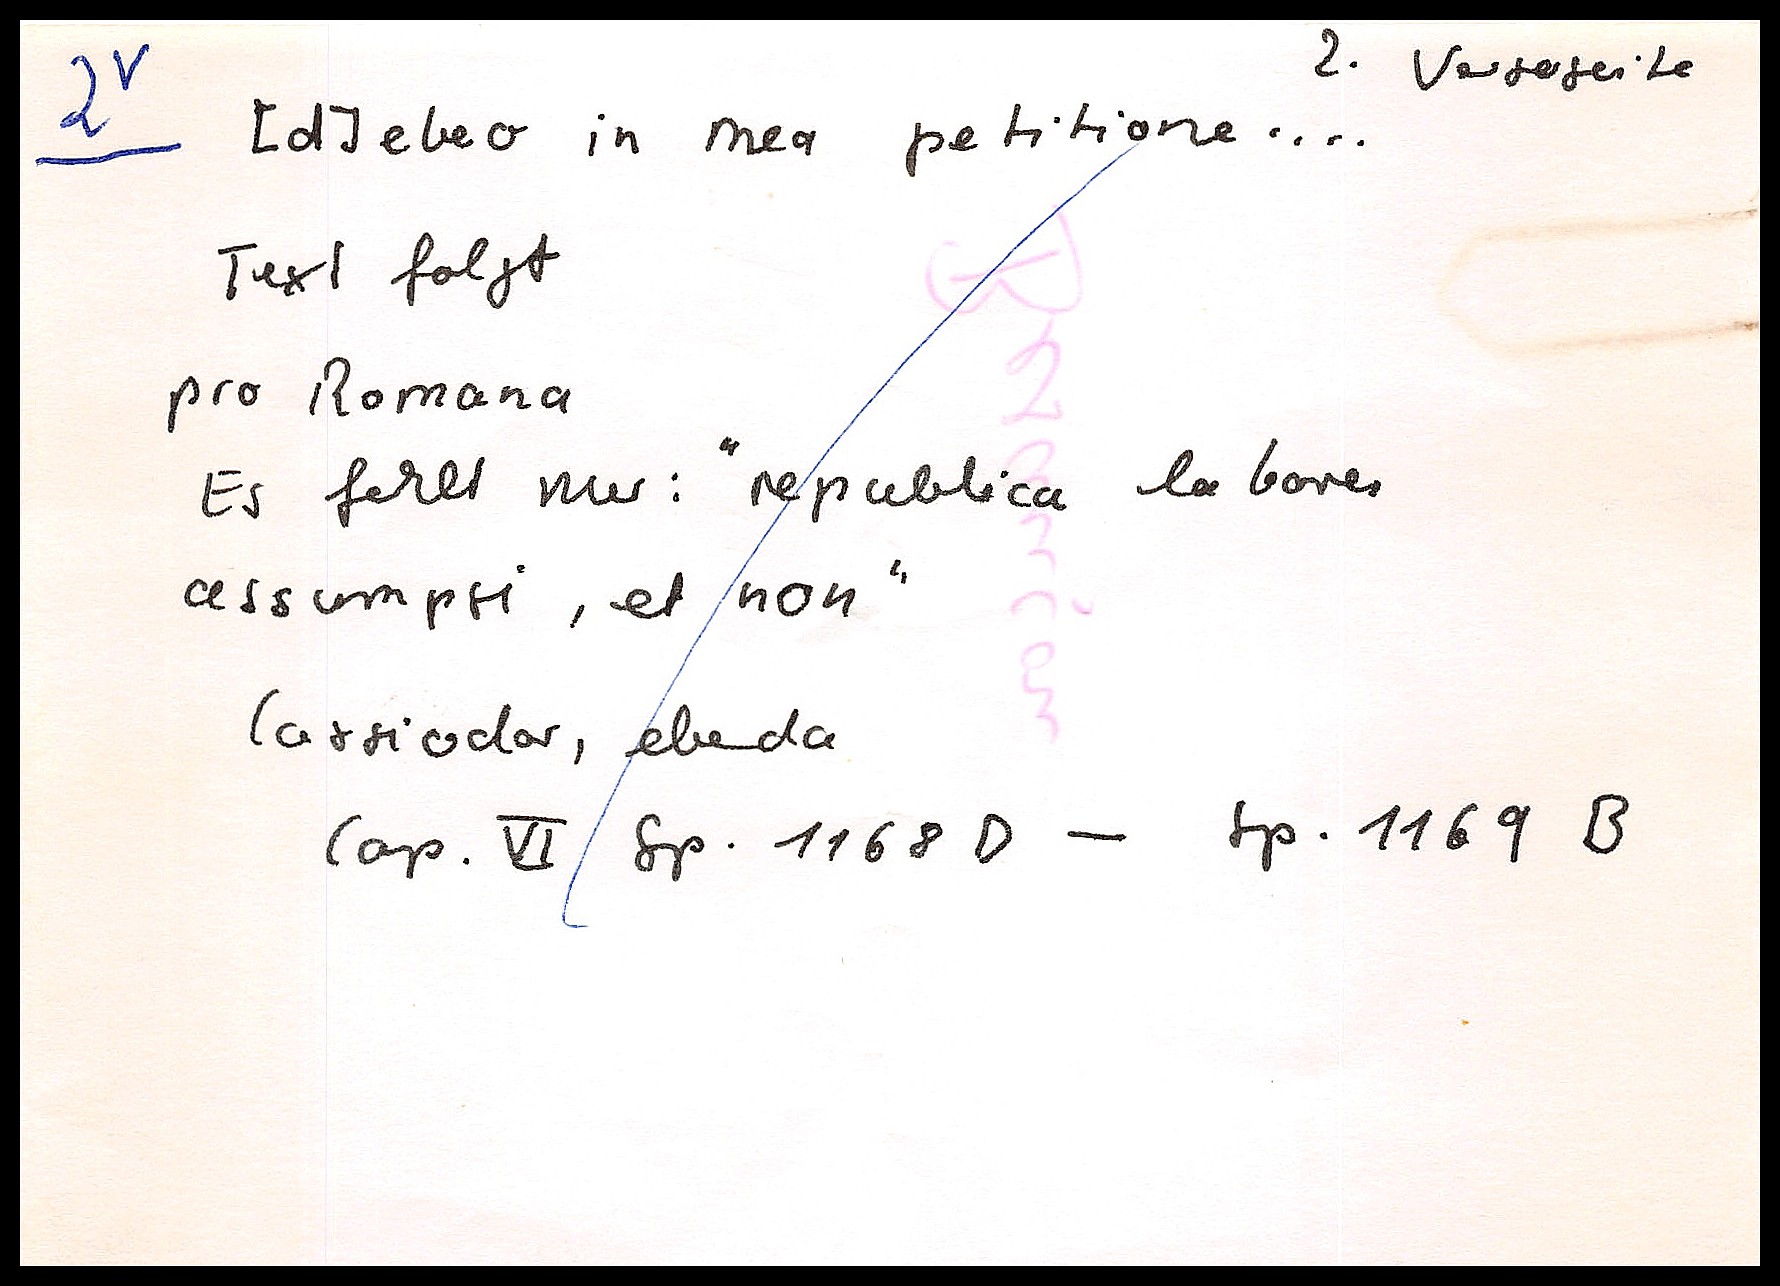 2. Versoseite
2v
[d]ebeo in mea petitione....
Text folgt
pro Romana
Es fehlt nur: "republica labores
assumpsi, et non"
Cassiodor, ebenda
Cap. VI Sp. 1168 D — Sp. 1169 B